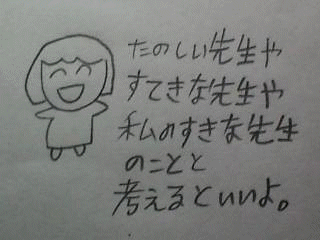 たのしい先生や
すてきな先生や
私のすきな先生
のことと
考えるといいよ。